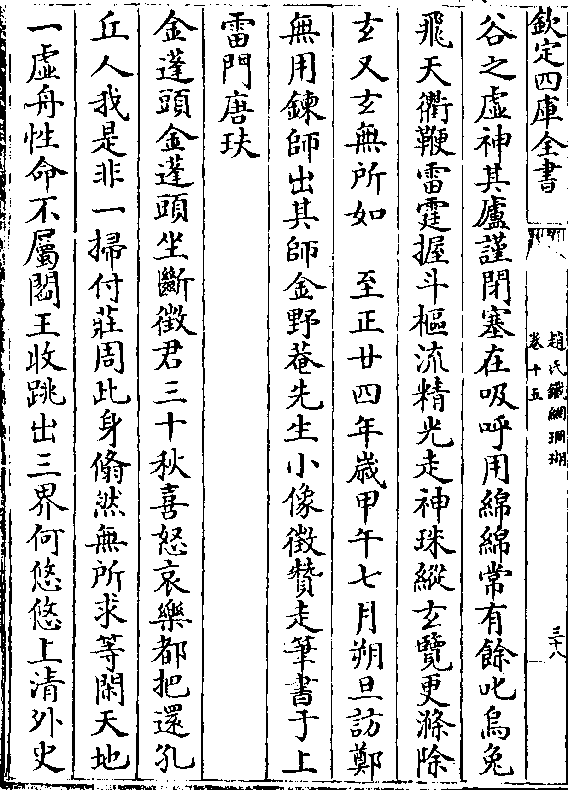 欽定四庫全書
趙氏鐵網珊瑚
卷十五
三十八
谷之虛神其廬謹閉塞在吸呼用綿綿常有餘叱烏兔
飛天衢鞭雷霆握斗樞流精光走神珠縱玄覽更滌除
玄又玄無所如　至正廿四年歲甲午七月朔旦訪鄭
無用鍊師出其師金野菴先生小像徵贊走筆書于上
雷門唐玞
金蓬頭金蓬頭坐斷徵君三十秋喜怒哀樂都把還孔
丘人我是非一掃付莊周此身翛然無所求等閑天地
一虛舟性命不屬閻王收跳出三界何悠悠上清外史